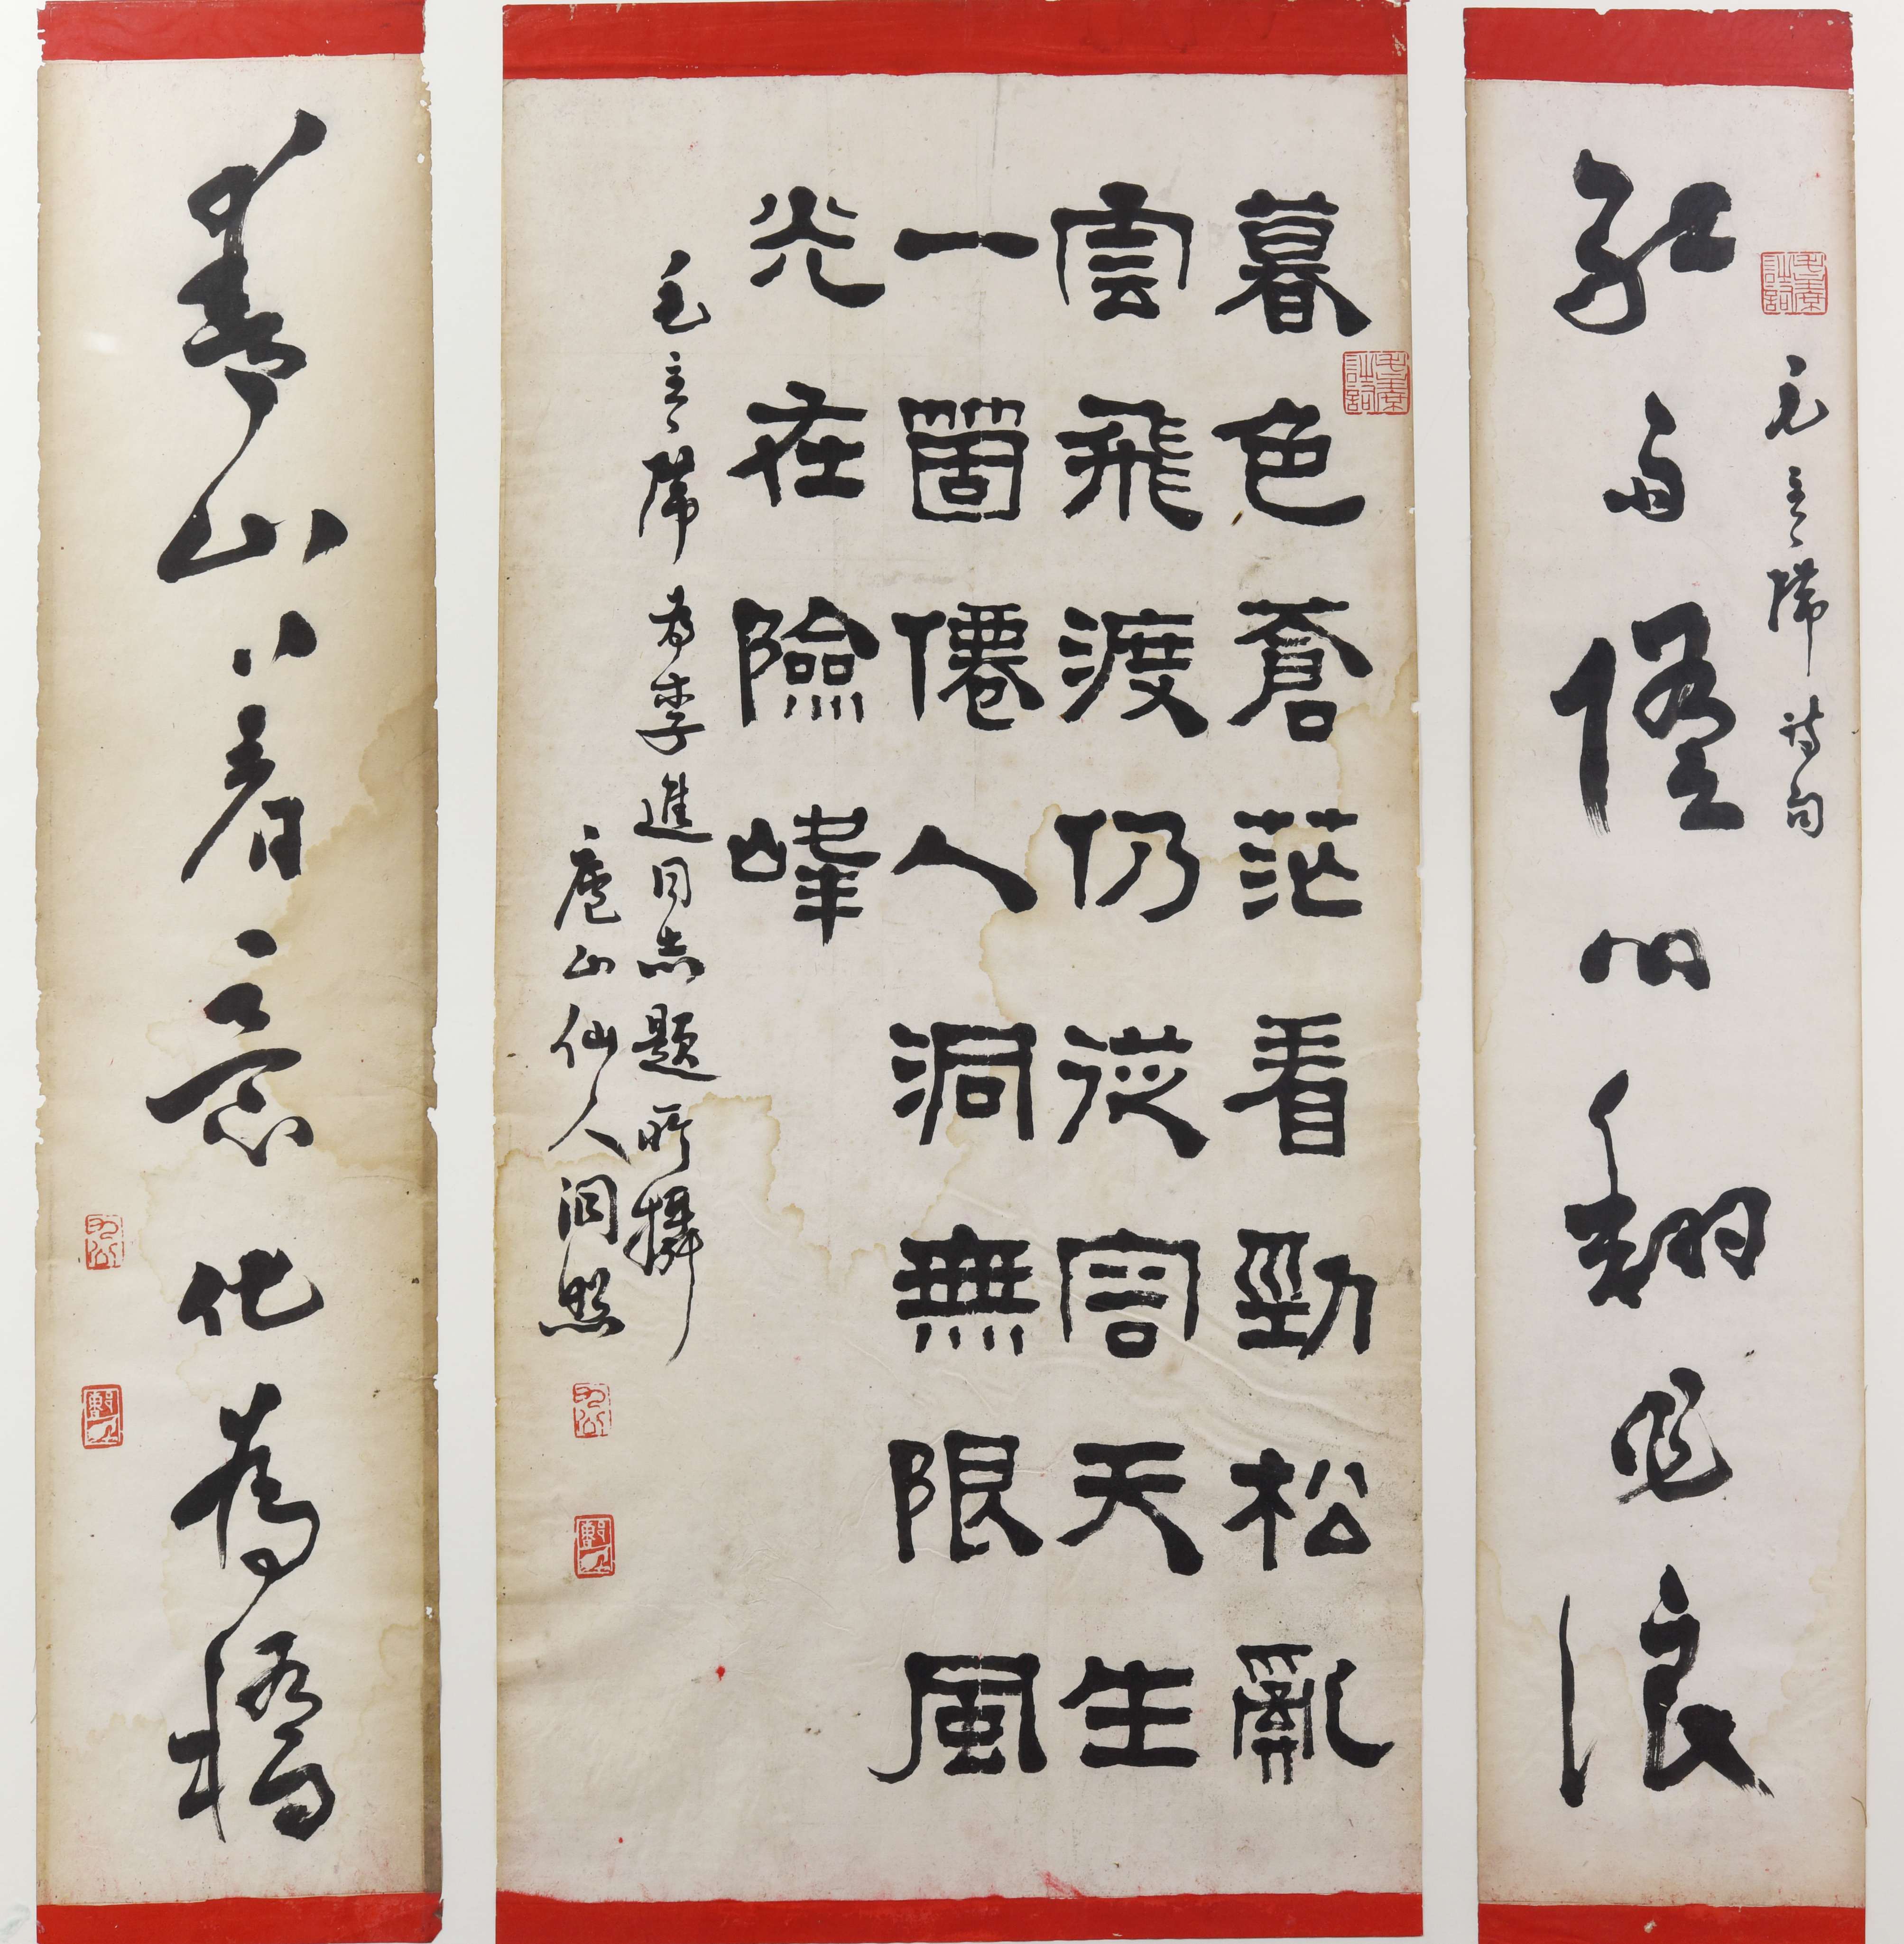 毛主席诗句
紅雨隨心翻作浪
暮色蒼茫看勁松亂
雲飛渡仍從容天生
一箇僊人洞無限風
光在險峰
毛主席为李進同志題所攝
廬山仙人洞照
青山着意化為橋